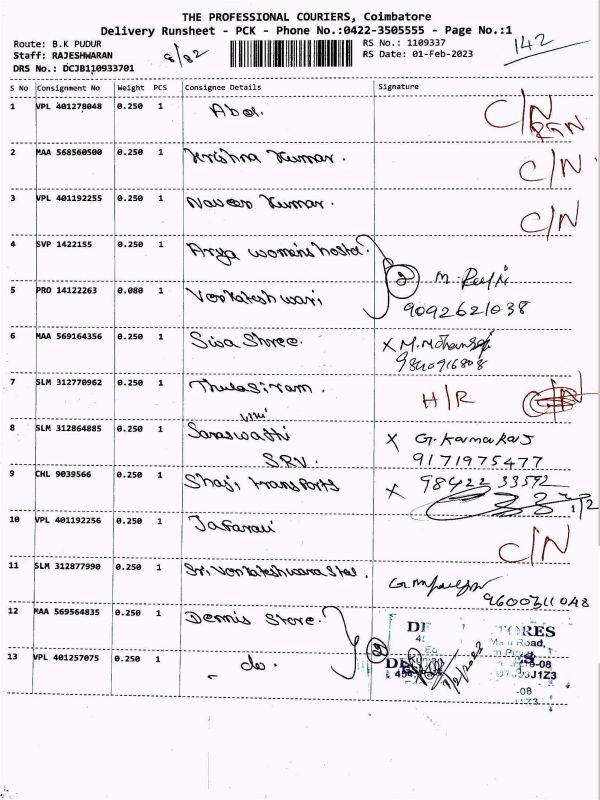 THE PROFESSIONAL COURIERS, Coimbatore
Delivery Runsheet - PCK - Phone No.:0422-3505555 - Page No.:1
Route: B.K PUDUR
Staff: RAJESHWARAN
DRS No.: DCJB110933701
8/82
RS No.: 1109337
RS Date: 01-Feb-2023
142
S No Consignment No Weight PCS Consignee Details Signature
1 VPL 401278048 0.250 1 C/N
2 MAA 568560500 0.250 1 Krishna Kumar. C/N
3 VPL 401192255 0.250 1 Naveen Kumar. C/N
4 SVP 1422155 0.250 1 Arya womens hostel. 2
5 PRO 14122263 0.080 1 Venkateshwari 9092621038
6 MAA 569164356 0.250 1 Siva Shree. X
9840916808
7 SLM 312770962 0.250 1 Thulasiram. H/R
8 SLM 312864885 0.250 1 Saraswathi X G. Karnakaraj
SRV. 9171975477
9 CHL 9039566 0.250 1 Shaji transports X 98422 33592
10 VPL 401192256 0.250 1 C/N
11 SLM 312877990 0.250 1 Sri Venkateshwara
9600311048
12 MAA 569564835 0.250 1 Dennis Store.
13 VPL 401257075 0.250 1 - do.